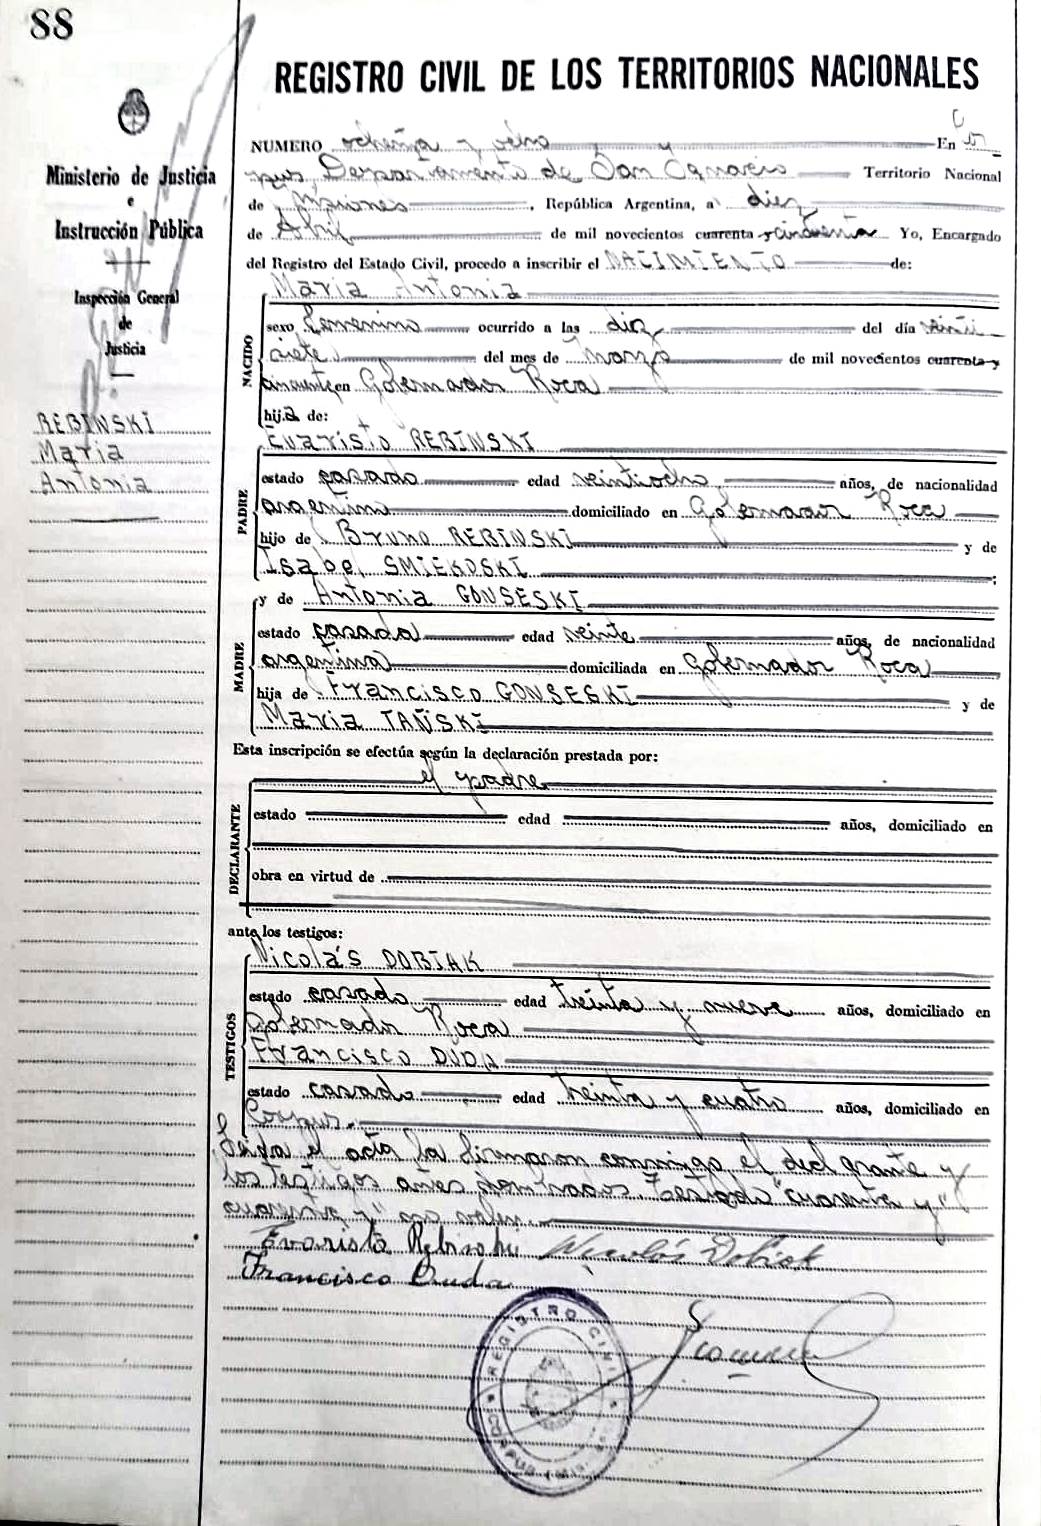 88
REGISTRO CIVIL DE LOS TERRITORIOS NACIONALES
Ministerio de Justicia
e
Instrucción Pública
Inspección General
de
Justicia
REBINSKI
Maria
Antonia
NUMERO ochenta y ocho En Cor
pus, Departamento de San Ignacio Territorio Nacional
de Misiones, República Argentina, a diez
de Abril de mil novecientos cuarenta y cincuenta Yo, Encargado
del Registro del Estado Civil, procedo a inscribir el NACIMIENTO de:
NACIDO
Maria Antonia
sexo femenino ocurrido a las diez del día veinti
siete del mes de marzo de mil novecientos cuarenta y
cincuenta en Gobernador Roca
hija de:
PADRE
Evaristo REBINSKI
estado casado edad veintiocho años, de nacionalidad
argentino domiciliado en Gobernador Roca
hijo de Bruno REBINSKI y de
Isabel SMIEKOSKI;
MADRE
y de Antonia GONSESKI
estado casada edad veinte años, de nacionalidad
argentina domiciliada en Gobernador Roca
hija de Francisco GONSESKI y de
Maria TAÑSKI
Esta inscripción se efectúa según la declaración prestada por:
DECLARANTE
el padre
estado edad años, domiciliado en
obra en virtud de
ante los testigos:
TESTIGOS
Nicolás DOBIAK
estado casado edad treinta y nueve años, domiciliado en
Gobernador Roca
Francisco DUDA
estado casado edad treinta y cuatro años, domiciliado en
Corpus.
Leida el acta la firmaron conmigo el declarante y
los testigos antes nombrados. Testado "cuarenta y"
cuarenta y" no valen.
Evaristo Rebinski Nicolás Dobiak
Francisco Duda
REGISTRO CIVIL
CORPUS (MIS.)